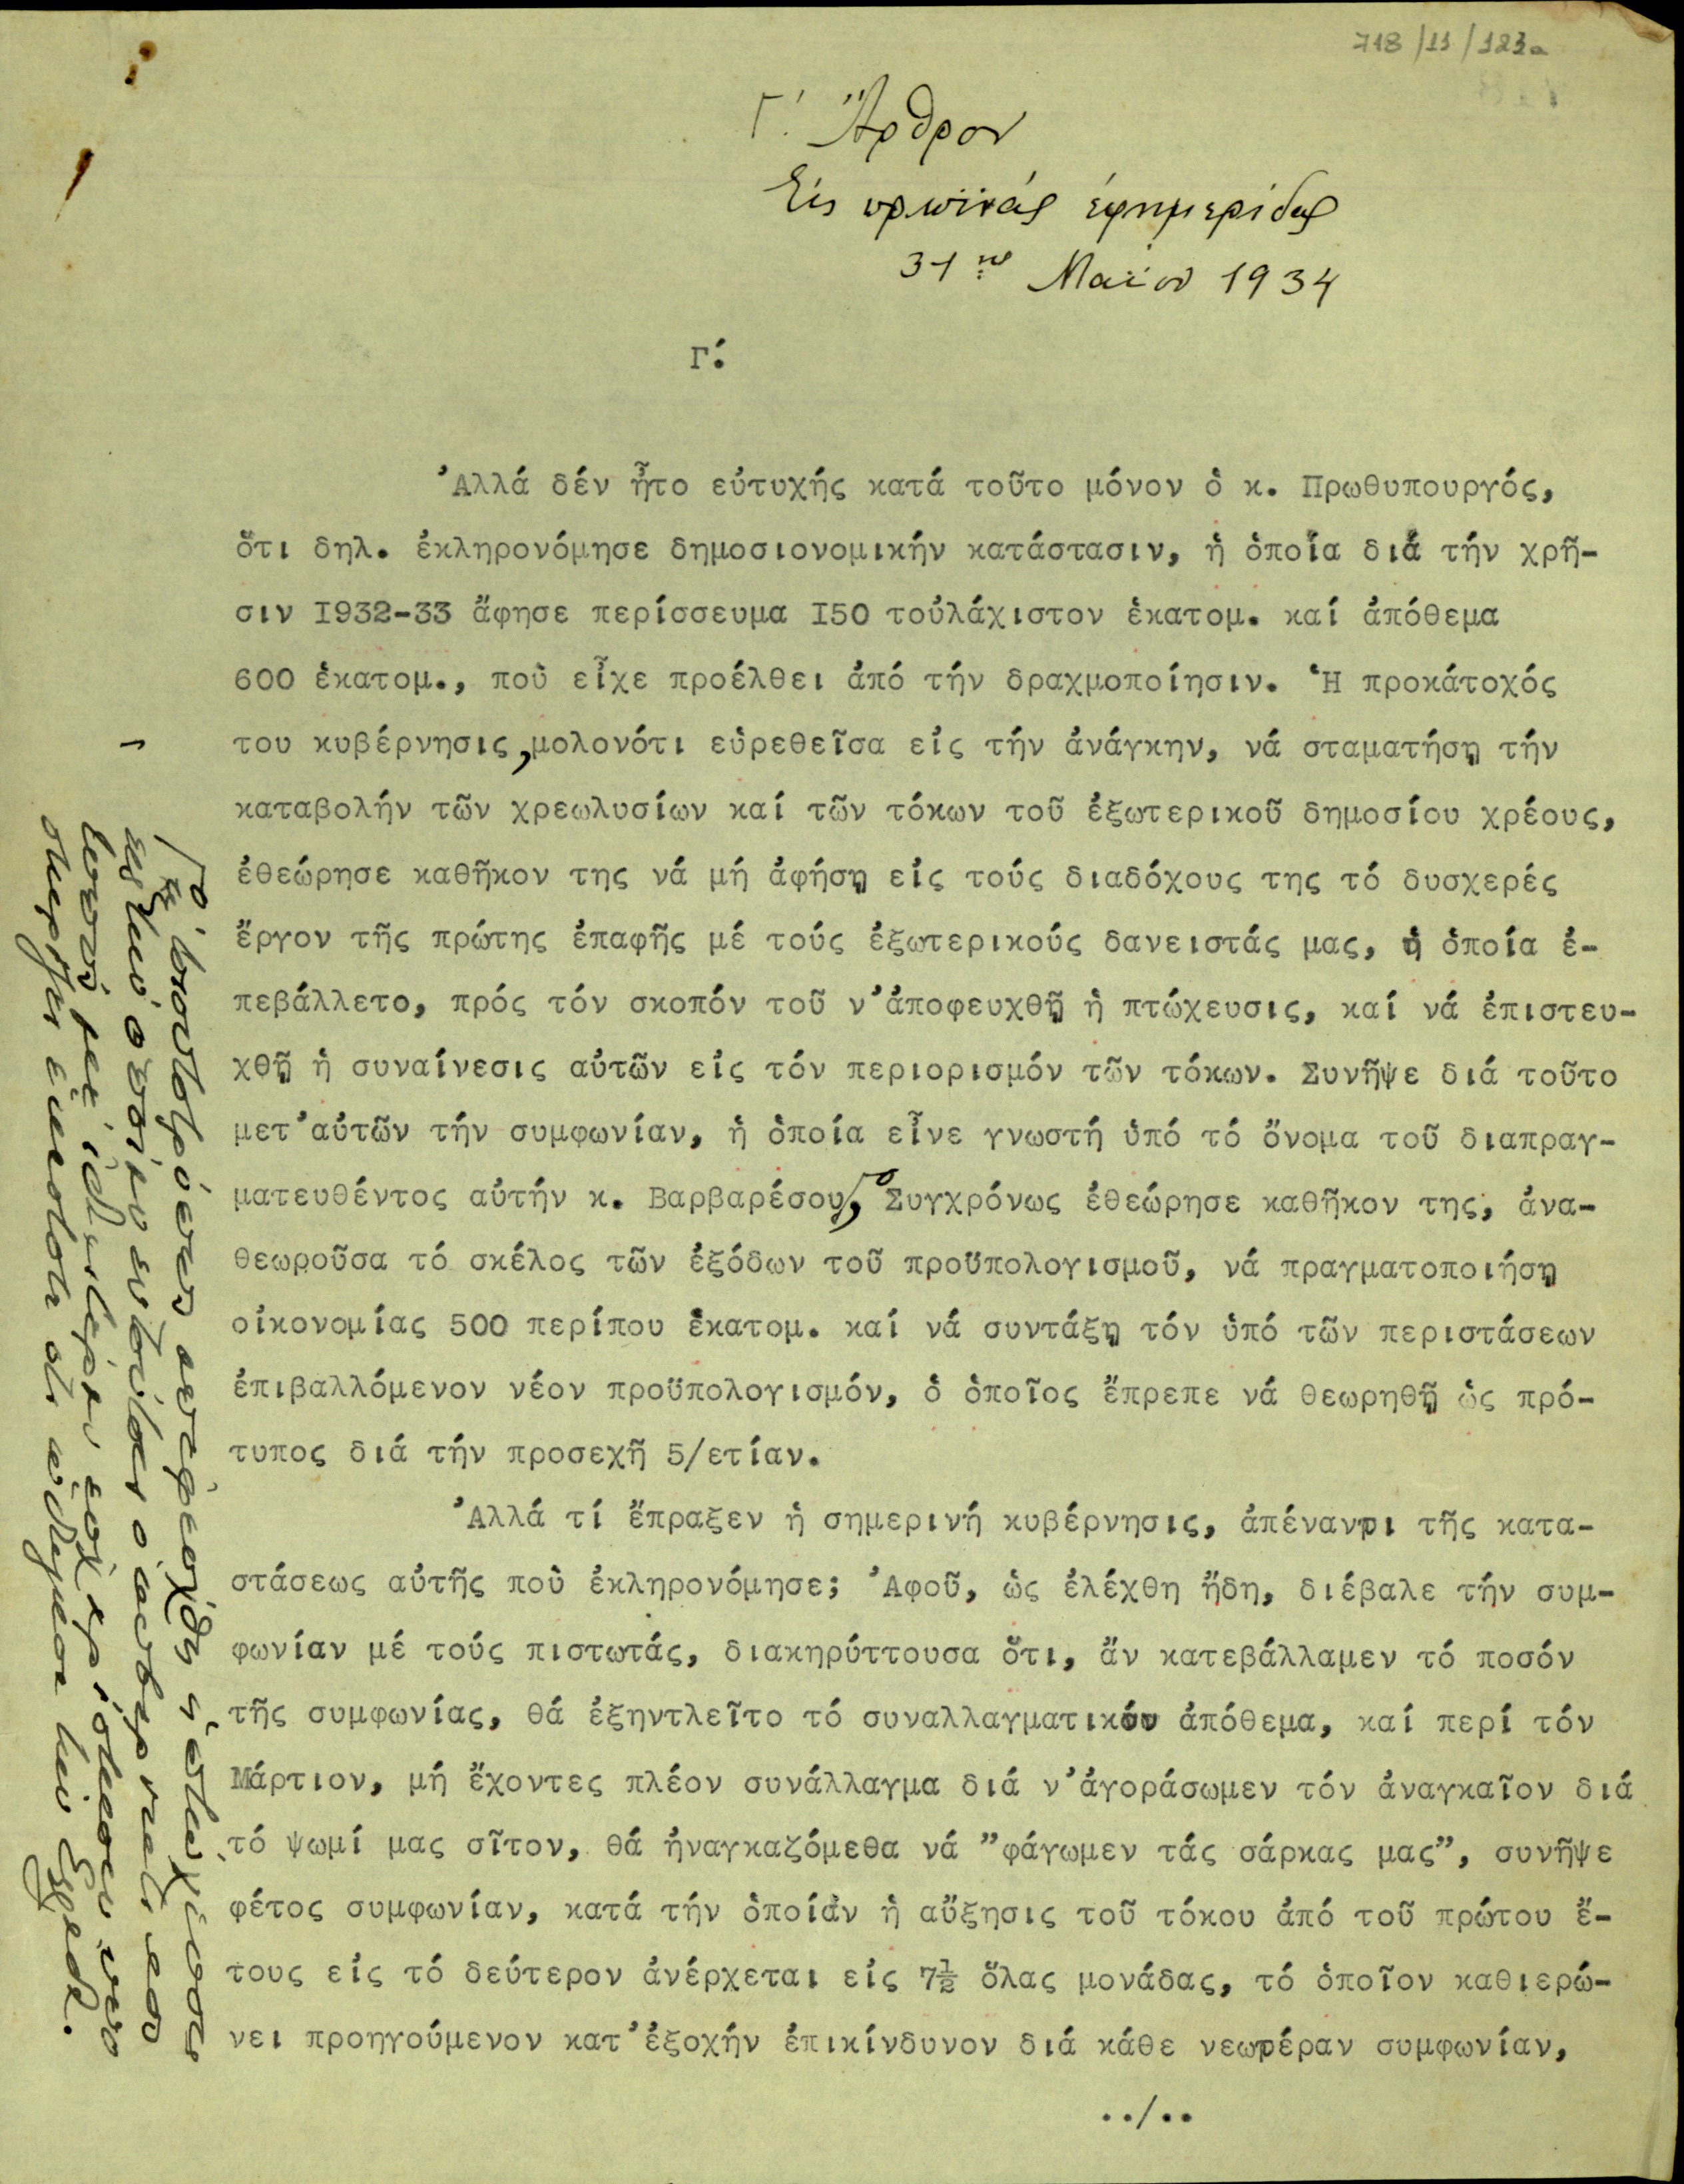 718/11/123a
Γ΄. Ἄρθρον
Εἰς πρωϊνάς ἐφημερίδας
31ης Μαΐου 1934
Γ΄.
Ἀλλά δέν ἦτο εὐτυχής κατά τοῦτο μόνον ὁ κ. Πρωθυπουργός,
ὅτι δηλ. ἐκληρονόμησε δημοσιονομικήν κατάστασιν, ἡ ὁποῖα διά τήν χρῆ-
σιν I932-33 ἄφησε περίσσευμα I50 τοὐλάχιστον ἑκατομ. καί ἀπόθεμα
600 ἑκατομ., ποὺ εἶχε προέλθει ἀπό τήν δραχμοποίησιν. Ἡ προκάτοχός
του κυβέρνησις, μολονότι εὑρεθεῖσα εἰς τήν ἀνάγκην, νά σταματήσῃ τήν
καταβολήν τῶν χρεωλυσίων καί τῶν τόκων τοῦ ἐξωτερικοῦ δημοσίου χρέους,
ἐθεώρησε καθῆκον της νά μή ἀφήσῃ εἰς τούς διαδόχους της τό δυσχερές
ἔργον τῆς πρώτης ἐπαφῆς μέ τούς ἐξωτερικούς δανειστάς μας, ἡ ὁποία ἐ-
πεβάλλετο, πρός τόν σκοπόν τοῦ ν' ἀποφευχθῇ ἡ πτώχευσις, καί νά ἐπιστευ-
χθῇ ἡ συναίνεσις αὐτῶν εἰς τόν περιορισμόν τῶν τόκων. Συνῆψε διά τοῦτο
μετ' αὐτῶν τήν συμφωνίαν, ἡ ὁποία εἶνε γνωστή ὑπό τό ὄνομα τοῦ διαπραγ-
ματευθέντος αὐτήν κ. Βαρβαρέσου, Συγχρόνως ἐθεώρησε καθῆκον της, ἀνα-
θεωροῦσα τό σκέλος τῶν ἐξόδων τοῦ προϋπολογισμοῦ, νά πραγματοποιήσῃ
οἰκονομίας 500 περίπου ἑκατομ. καί νά συντάξῃ τόν ὑπό τῶν περιστάσεων
ἐπιβαλλόμενον νέον προϋπολογισμόν, ὁ ὁποῖος ἔπρεπε νά θεωρηθῇ ὡς πρό-
τυπος διά τήν προσεχῆ 5/ετίαν.
Ἀλλά τί ἔπραξεν ἡ σημερινή κυβέρνησις, ἀπέναντι τῆς κατα-
στάσεως αὐτῆς ποὺ ἐκληρονόμησε; Ἀφοῦ, ὡς ἐλέχθη ἤδη, διέβαλε τήν συμ-
φωνίαν μέ τούς πιστωτάς, διακηρύττουσα ὅτι, ἄν κατεβάλλαμεν τό ποσόν
τῆς συμφωνίας, θά ἐξηντλεῖτο τό συναλλαγματικόν ἀπόθεμα, καί περί τόν
Μάρτιον, μή ἔχοντες πλέον συνάλλαγμα διά ν' ἀγοράσωμεν τόν ἀναγκαῖον διά
τό ψωμί μας σῖτον, θά ἠναγκαζόμεθα νά "φάγωμεν τάς σάρκας μας", συνῆψε
φέτος συμφωνίαν, κατά τήν ὁποίαν ἡ αὔξησις τοῦ τόκου ἀπό τοῦ πρώτου ἔ-
τους εἰς τό δεύτερον ἀνέρχεται εἰς 7½ ὅλας μονάδας, τό ὁποῖον καθιερώ-
νει προηγούμενον κατ' ἐξοχήν ἐπικίνδυνον διά κάθε νεωτέραν συμφωνίαν,
../..